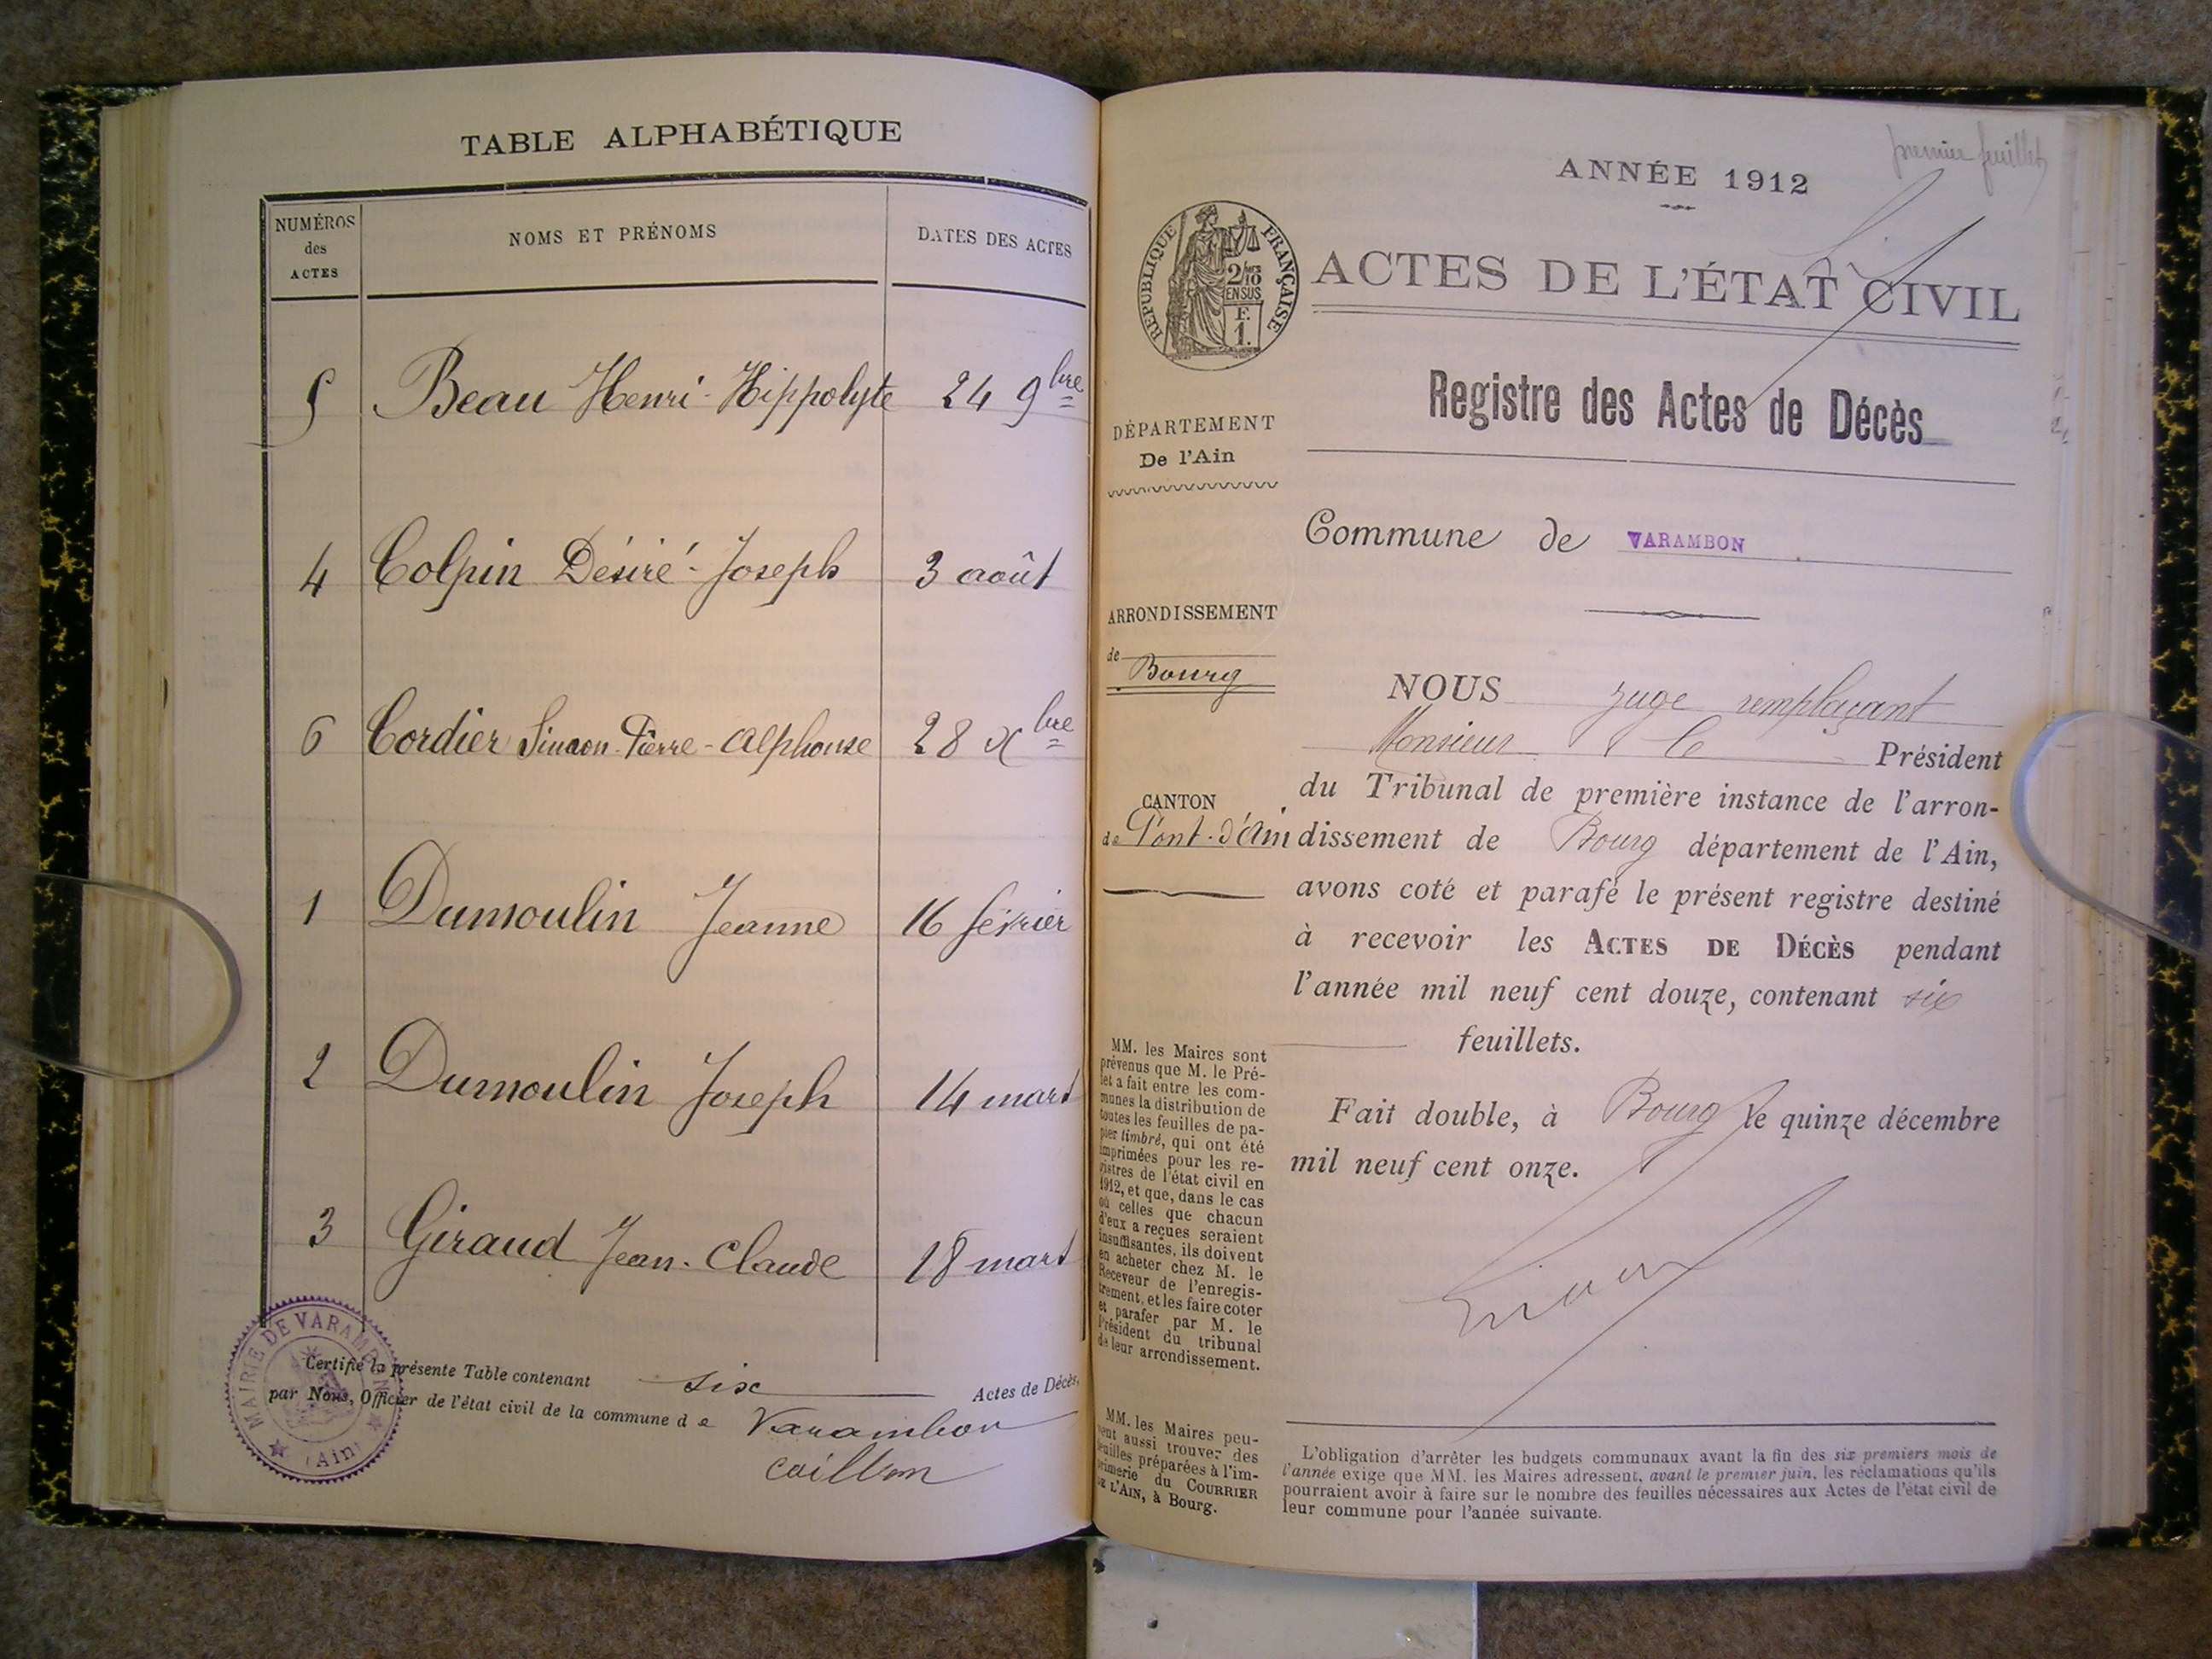 TABLE ALPHABÉTIQUE
NUMÉROS des ACTES
NOMS ET PRÉNOMS
DATES DES ACTES
5 Beau Henri-Hippolyte 24 9bre
4 Colpin Désiré-Joseph 3 août
6 Cordier Simon-Pierre-Alphonse 28 Xbre
1 Dumoulin Jeanne 16 février
2 Dumoulin Joseph 14 mars
3 Giraud Jean-Claude 18 mars
MAIRIE DE VARAMBON
(Ain)
Certifié la présente Table contenant six Actes de Décès,
par Nous, Officier de l'état civil de la commune de Varambon
premier feuillet
ANNÉE 1912
RÉPUBLIQUE FRANÇAISE
2/10
EN SUS
F.
1.
ACTES DE L'ÉTAT CIVIL
Registre des Actes de Décès
DÉPARTEMENT
De l'Ain
Commune de VARAMBON
ARRONDISSEMENT
de Bourg
CANTON
de Pont-d'Ain
MM. les Maires sont
prévenus que M. le Pré-
fet a fait entre les com-
munes la distribution de
toutes les feuilles de pa-
pier timbré, qui ont été
imprimées pour les re-
gistres de l'état civil en
1912, et que, dans le cas
où celles que chacun
d'eux a reçues seraient
insuffisantes, ils doivent
en acheter chez M. le
Receveur de l'enregis-
trement, et les faire coter
et parafer par M. le
Président du tribunal
de leur arrondissement.
MM. les Maires peu-
vent aussi trouver des
feuilles préparées à l'im-
primerie du COURRIER
DE L'AIN, à Bourg.
NOUS juge remplaçant
Monsieur le Président
du Tribunal de première instance de l'arron-
dissement de Bourg département de l'Ain,
avons coté et parafé le présent registre destiné
à recevoir les ACTES DE DÉCÈS pendant
l'année mil neuf cent douze, contenant six
feuillets.
Fait double, à Bourg le quinze décembre
mil neuf cent onze.
L'obligation d'arrêter les budgets communaux avant la fin des six premiers mois de
l'année exige que MM. les Maires adressent, avant le premier juin, les réclamations qu'ils
pourraient avoir à faire sur le nombre des feuilles nécessaires aux Actes de l'état civil de
leur commune pour l'année suivante.